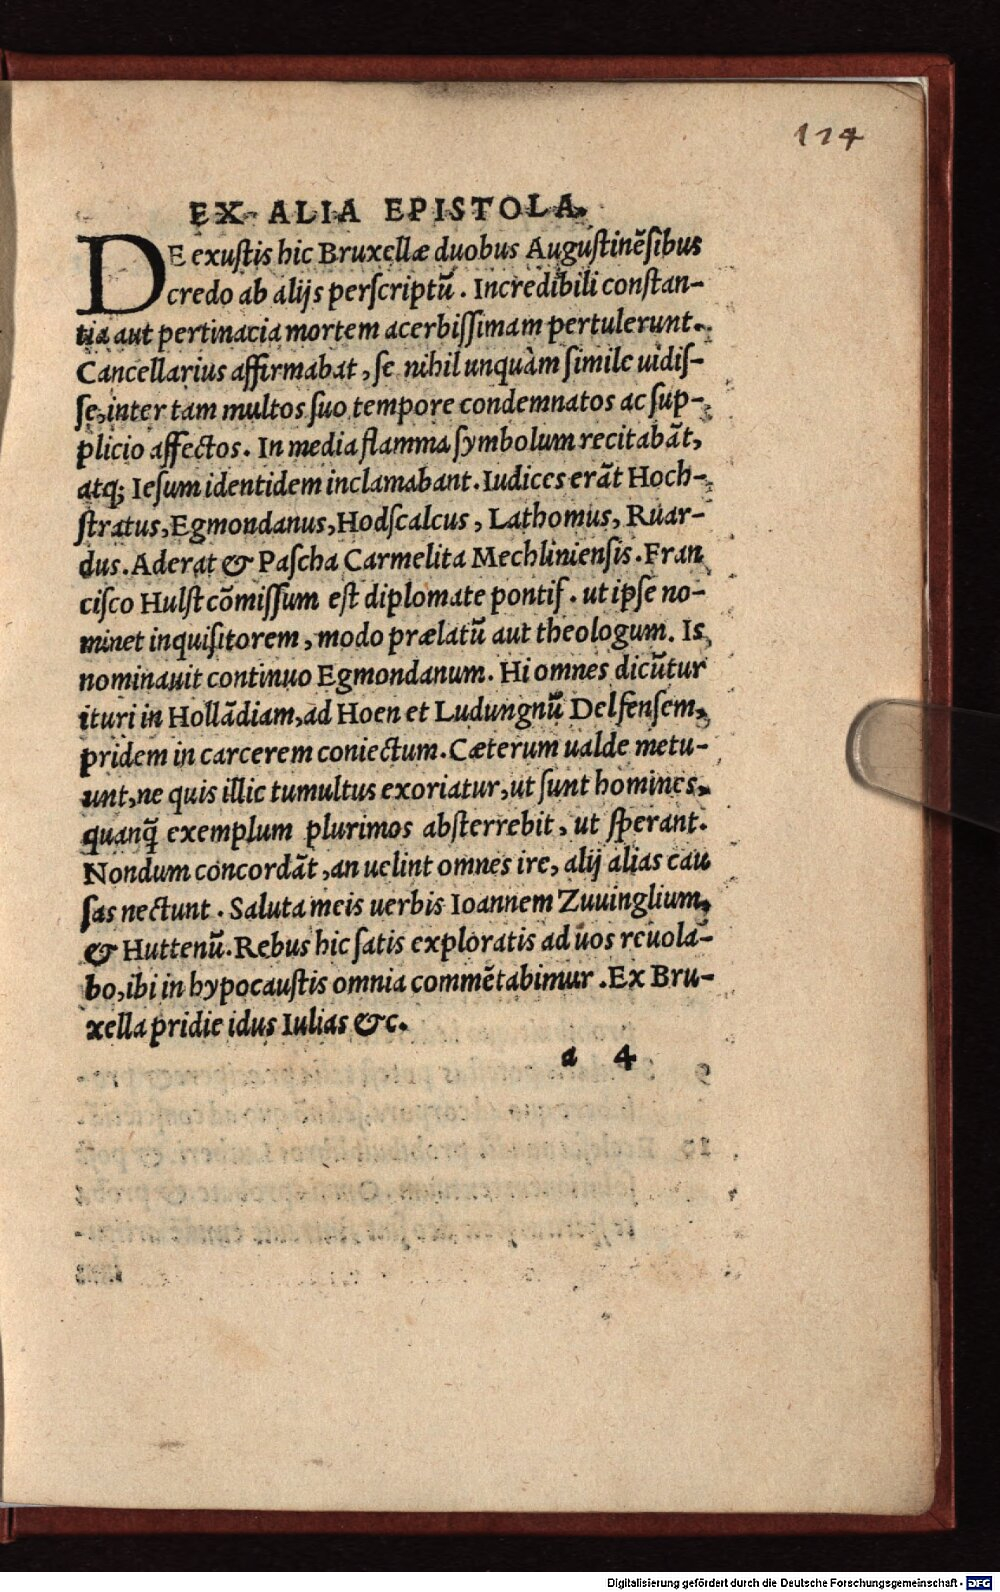 114
EX ALIA EPISTOLA.
DE exustis hic Bruxellæ duobus Augustinẽsibus
credo ab alijs perscriptũ. Incredibili constan-
tia aut pertinacia mortem acerbissimam pertulerunt.
Cancellarius affirmabat, se nihil unquàm simile uidis-
se, inter tam multos suo tempore condemnatos ac sup-
plicio affectos. In media flamma symbolum recitabãt,
atq; Iesum identidem inclamabant. Iudices erãt Hoch-
stratus, Egmondanus, Hodscalcus, Lathomus, Ruar-
dus. Aderat & Pascha Carmelita Mechliniensis. Fran
cisco Hulst cõmissum est diplomate pontif. ut ipse no-
minet inquisitorem, modo prælatũ aut theologum. Is
nominauit continuo Egmondanum. Hi omnes dicũtur
ituri in Hollãdiam, ad Hoen et Ludungnũ Delfensem,
pridem in carcerem coniectum. Cæterum ualde metu-
unt, ne quis illic tumultus exoriatur, ut sunt homines,
quanq̃ exemplum plurimos absterrebit, ut sperant.
Nondum concordãt, an uelint omnes ire, alij alias cau
sas nectunt. Saluta meis uerbis Ioannem Zuuinglium,
& Huttenũ. Rebus hic satis exploratis ad uos reuola-
bo, ibi in hypocaustis omnia commẽtabimur. Ex Bru-
xella pridie idus Iulias &c.
a 4
Digitalisierung gefördert durch die Deutsche Forschungsgemeinschaft - DFG